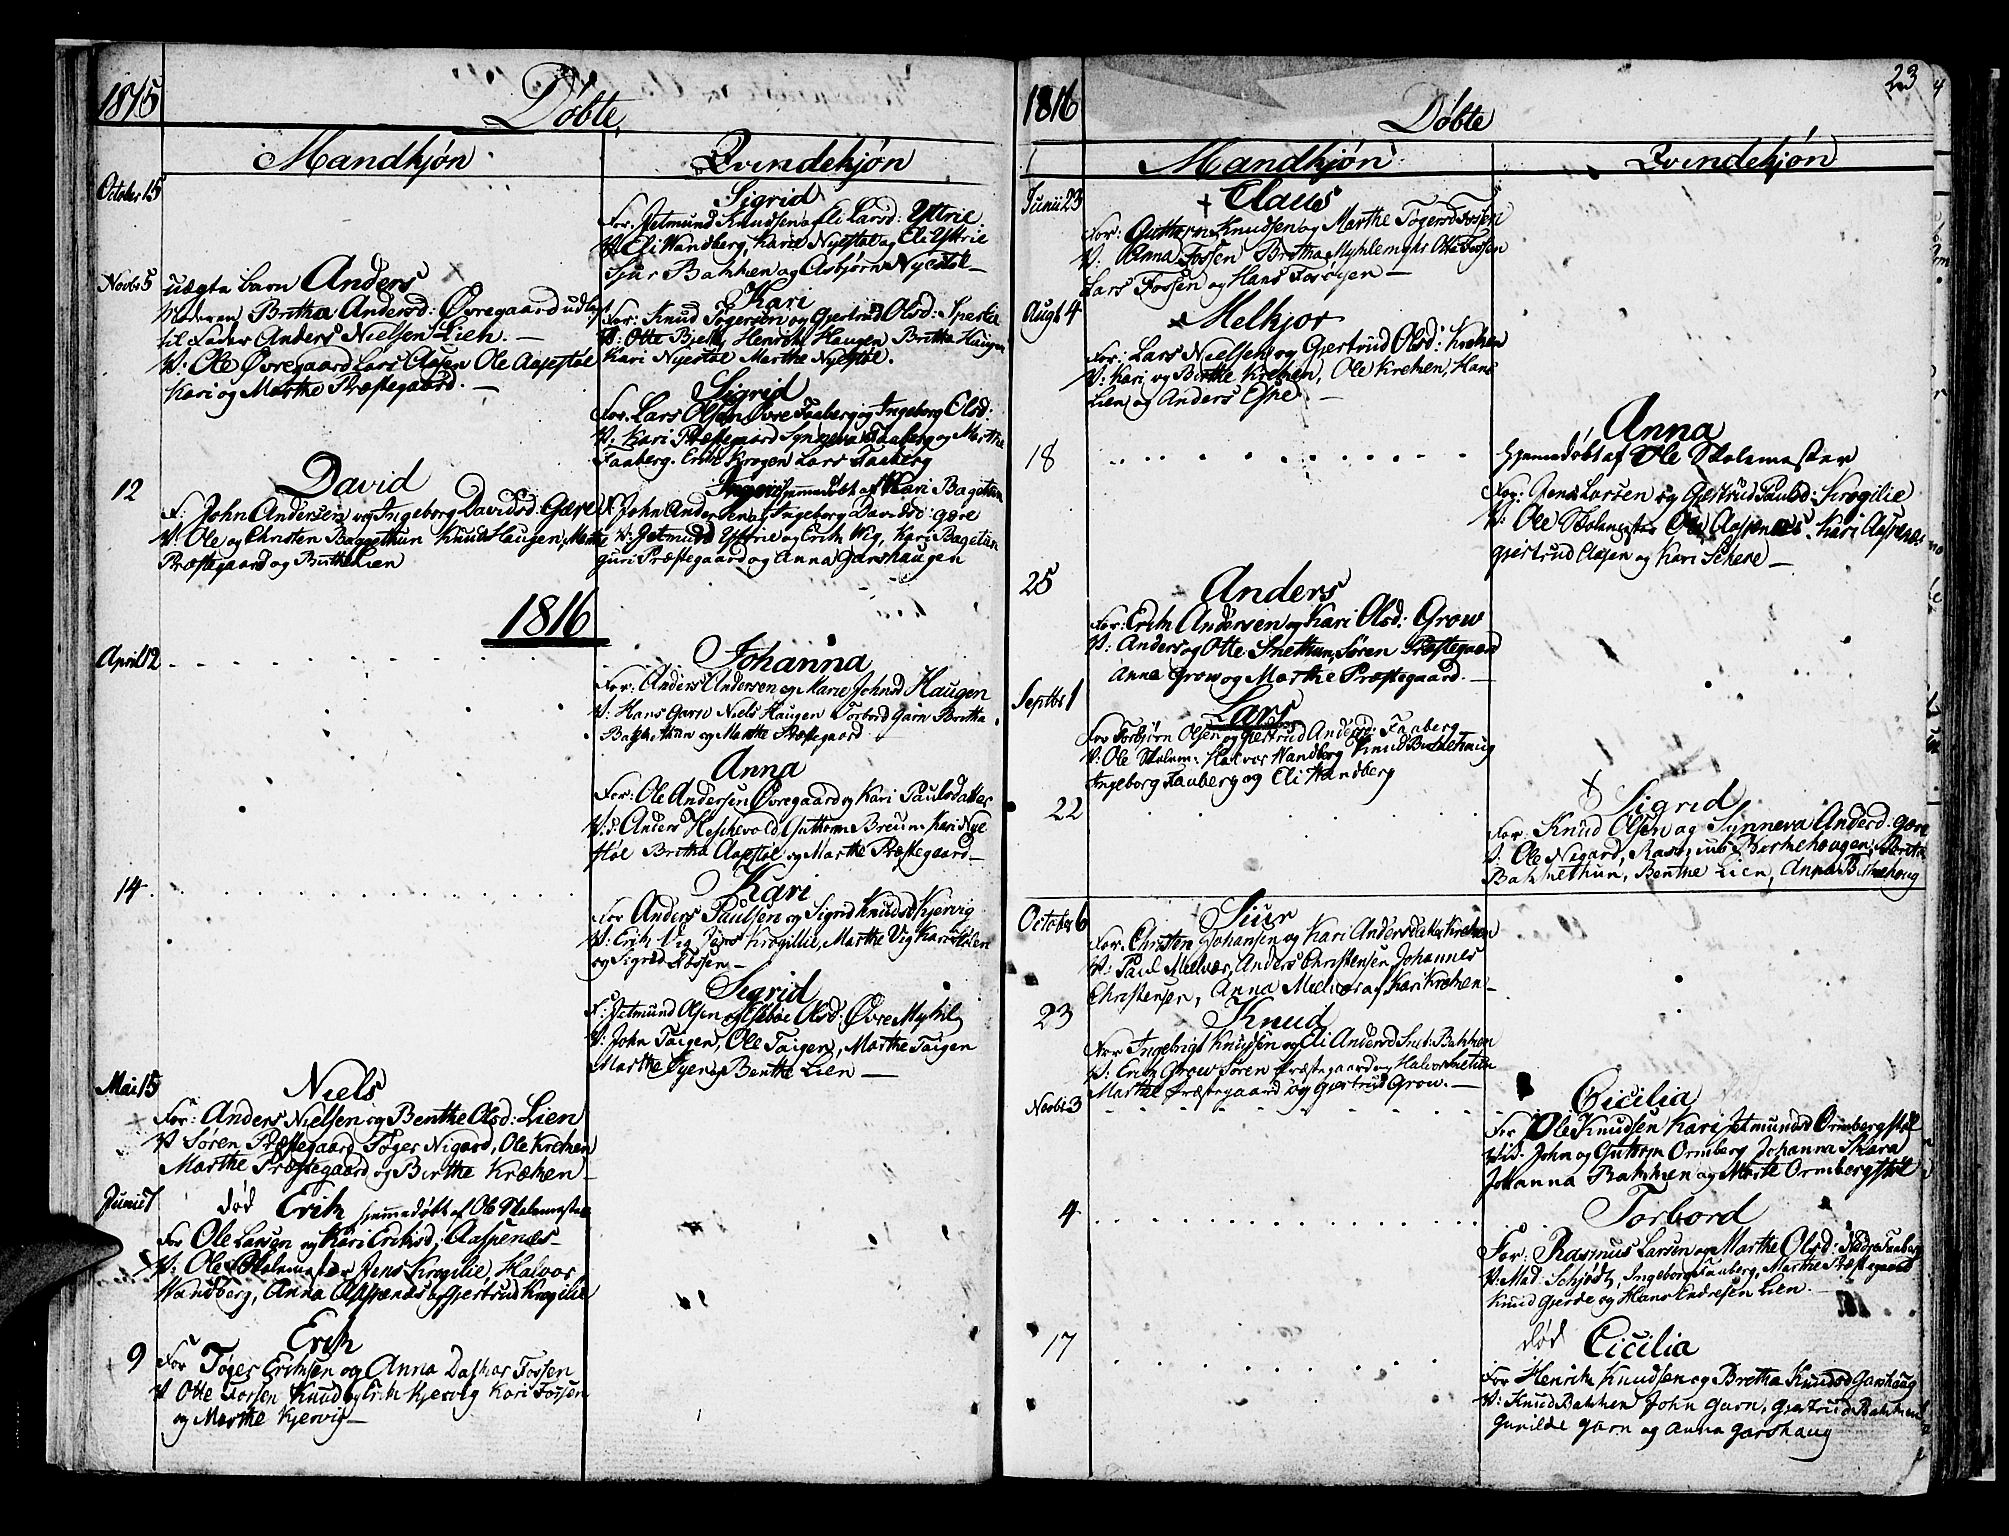 1815
Døbte
Mandkjøn
Qvindekjøn
October 15
Sigrid
For: Jetmund Knudsen og Eli Larsd: Yttrie
V: Eli Wandberg, Kari Nyestøl og Eli Yttrie
Siur Bakken og Asbjørn Nyestøl
Novbr 5
uægte barn Anders
Moderen Britha Andersd: Øvregaard udlagt
til Fader Anders Nielsen Lien.
V: Ole Øvregaard Lars Aasen Ole Aapestøl
Kari og Marthe Præstegaard.
Kari
For: Knud Tøgersen og Gjertrud Olsd: Sperla
V: Otte Henrik Haugen Britha Haugen
Kari Nyestøl Marthe Nyestøl.
Sigrid
For. Lars Olsen Øvre Faaberg og Ingeborg Elsd:
V. Kari Præstegaard Synneva Faaberg og Marthe
Faaberg. Erik Krogen Lars Faaberg
12
David
F: John Andersen og Ingeborg Davidsd: Gære
V: Ole og Christen Baggethun Knud Haugen, Marthe
Præstegaard og Birthe Lien
Ingeri hjemmedøbt af Kari Bagethun
F. John Andersen og Ingeborg Davidsd: Gære
V: Jetmund Yttrie og Erik Vig, Kari Bagetun
Guri Præstegaard og Anna Garshaugen
1816
April 12
Johanna
For: Anders Andersen og Marie Johnsd Haugen
V: Hans Garn Niels Haugen Torbord Garn Britha
Bakkethun og Marthe Præstegaard
Anna
For: Ole Andersen Øvregaard og Kari Paulsdatter
V: Anders Heskevold Guttorm Breum Kari Nye
støl Britha Aapstøl og Marthe Præstegaard
14
Kari
For Anders Paulsen og Sigrid Knudsd Kjervig
V: Erik Vig Jens Krogillie, Marthe Vig Kari Holen
og Sigrid Fossen
Sigrid
F: Jetmund Olsen og Olsd: Øvre Myhil
V: John Taigen, Ole Taigen, Marthe Taigen
Marthe og Benthe Lien
Mai 15
Niels
For: Anders Nielsen og Benthe Olsd: Lien
V Søren Præstegaard Tøger Nigard, Ole Kreken
Marthe Præstegaard og Birthe Kræken
Junii 7
død Erik hjemmedøbt af Ole Skolemester
For Ole Larsen og Kari Eriksd: Aaspenæs
V: Ole Skolemester Jens Krogilie, Halvor
Wandberg, Anna Aaspenæs og Gjertrud Krogilie
9
Erik
For Tøger Eriksen og Anna Fossen
V Otte Fossen Knud og Erik Kjervig Kari Fossen
og Marthe Kjervig
23
1816
Døbte
Mandkjøn
Qvindekjøn
Junii 23
+ Claus
For: Guttorm Knudsen og Marthe Tøgersd Fossen
V. Anna Fossen Britha Otte Fossen
Lars Fossen og Hans
Augt 4
Melkjor
For: Lars Nielsen og Gjertrud Olsd: Kreken
V: Kari og Birthe Kreken, Ole Kreken, Hans
Lien og Anders Espe
18
Anna
hjemmedøbt af Ole Skolemester
For: Jens Larsen og Gjertrud Paulsd: Krogilie
V: Ole Skolemester Ole Aaspenæs. Kari Aaspenæs
Gjertrud Clasen og Kari
25
Anders
For: Erik Andersen og Kari Olsd: Grow
V: Anders og Otte Snethun, Søren Præstegaard
Anna Grow og Marthe Præstegaard.
Septbr 1
Lars
For Torbjørn Olsen og Gjertrud Andersd: Faaberg
V: Ole Skolem: Halvor Wandberg Knud Birkehaug
Ingeborg Faaberg og Eli Wandberg
22
Sigrid
For: Knud Olsen og Synneva Andersd: Gære
V: Ole Nigard, Rasmus Birkehougen, Brita
Bakkethun, Benthe Lien, Anna Birkehoug
October 6
Siur
For. Christen Johansen og Kari Andersdatter Kreken
V: Paul Melvær, Anders Christensen Johannes
Christensen, Anna Melvær og Kari Kreken
23
Knud
For Ingebrigt Knudsen og Eli Andersd Snet: Bakken
V: Erik Grow Søren Præstegaard og Halvor Snetun
Marthe Præstegaard og Gjertrud Grow.
Novbr 3
Cicilia
For Ole Knudsen Kari Jetmundsd Ormbergstøl
Vid. John og Guttorm Ormberg Johanna Skara
Johanna Bakken og Marte Ormbergstøl
4
Torbord
For: Rasmus Larsen og Marthe Olsd: Nedre Faaberg
V: Mad: Schjødtz, Ingeborg Faaberg, Marthe Præstegaard
Knud Gjerde og Hans Endresen Lien.
17
død Cicilia
For Henrik Knudsen og Britha Knudsd Garshaug
V: Knud Bakken John Garn, Gjertrud Bakken
Gunilde Garn og Anna Garshaug